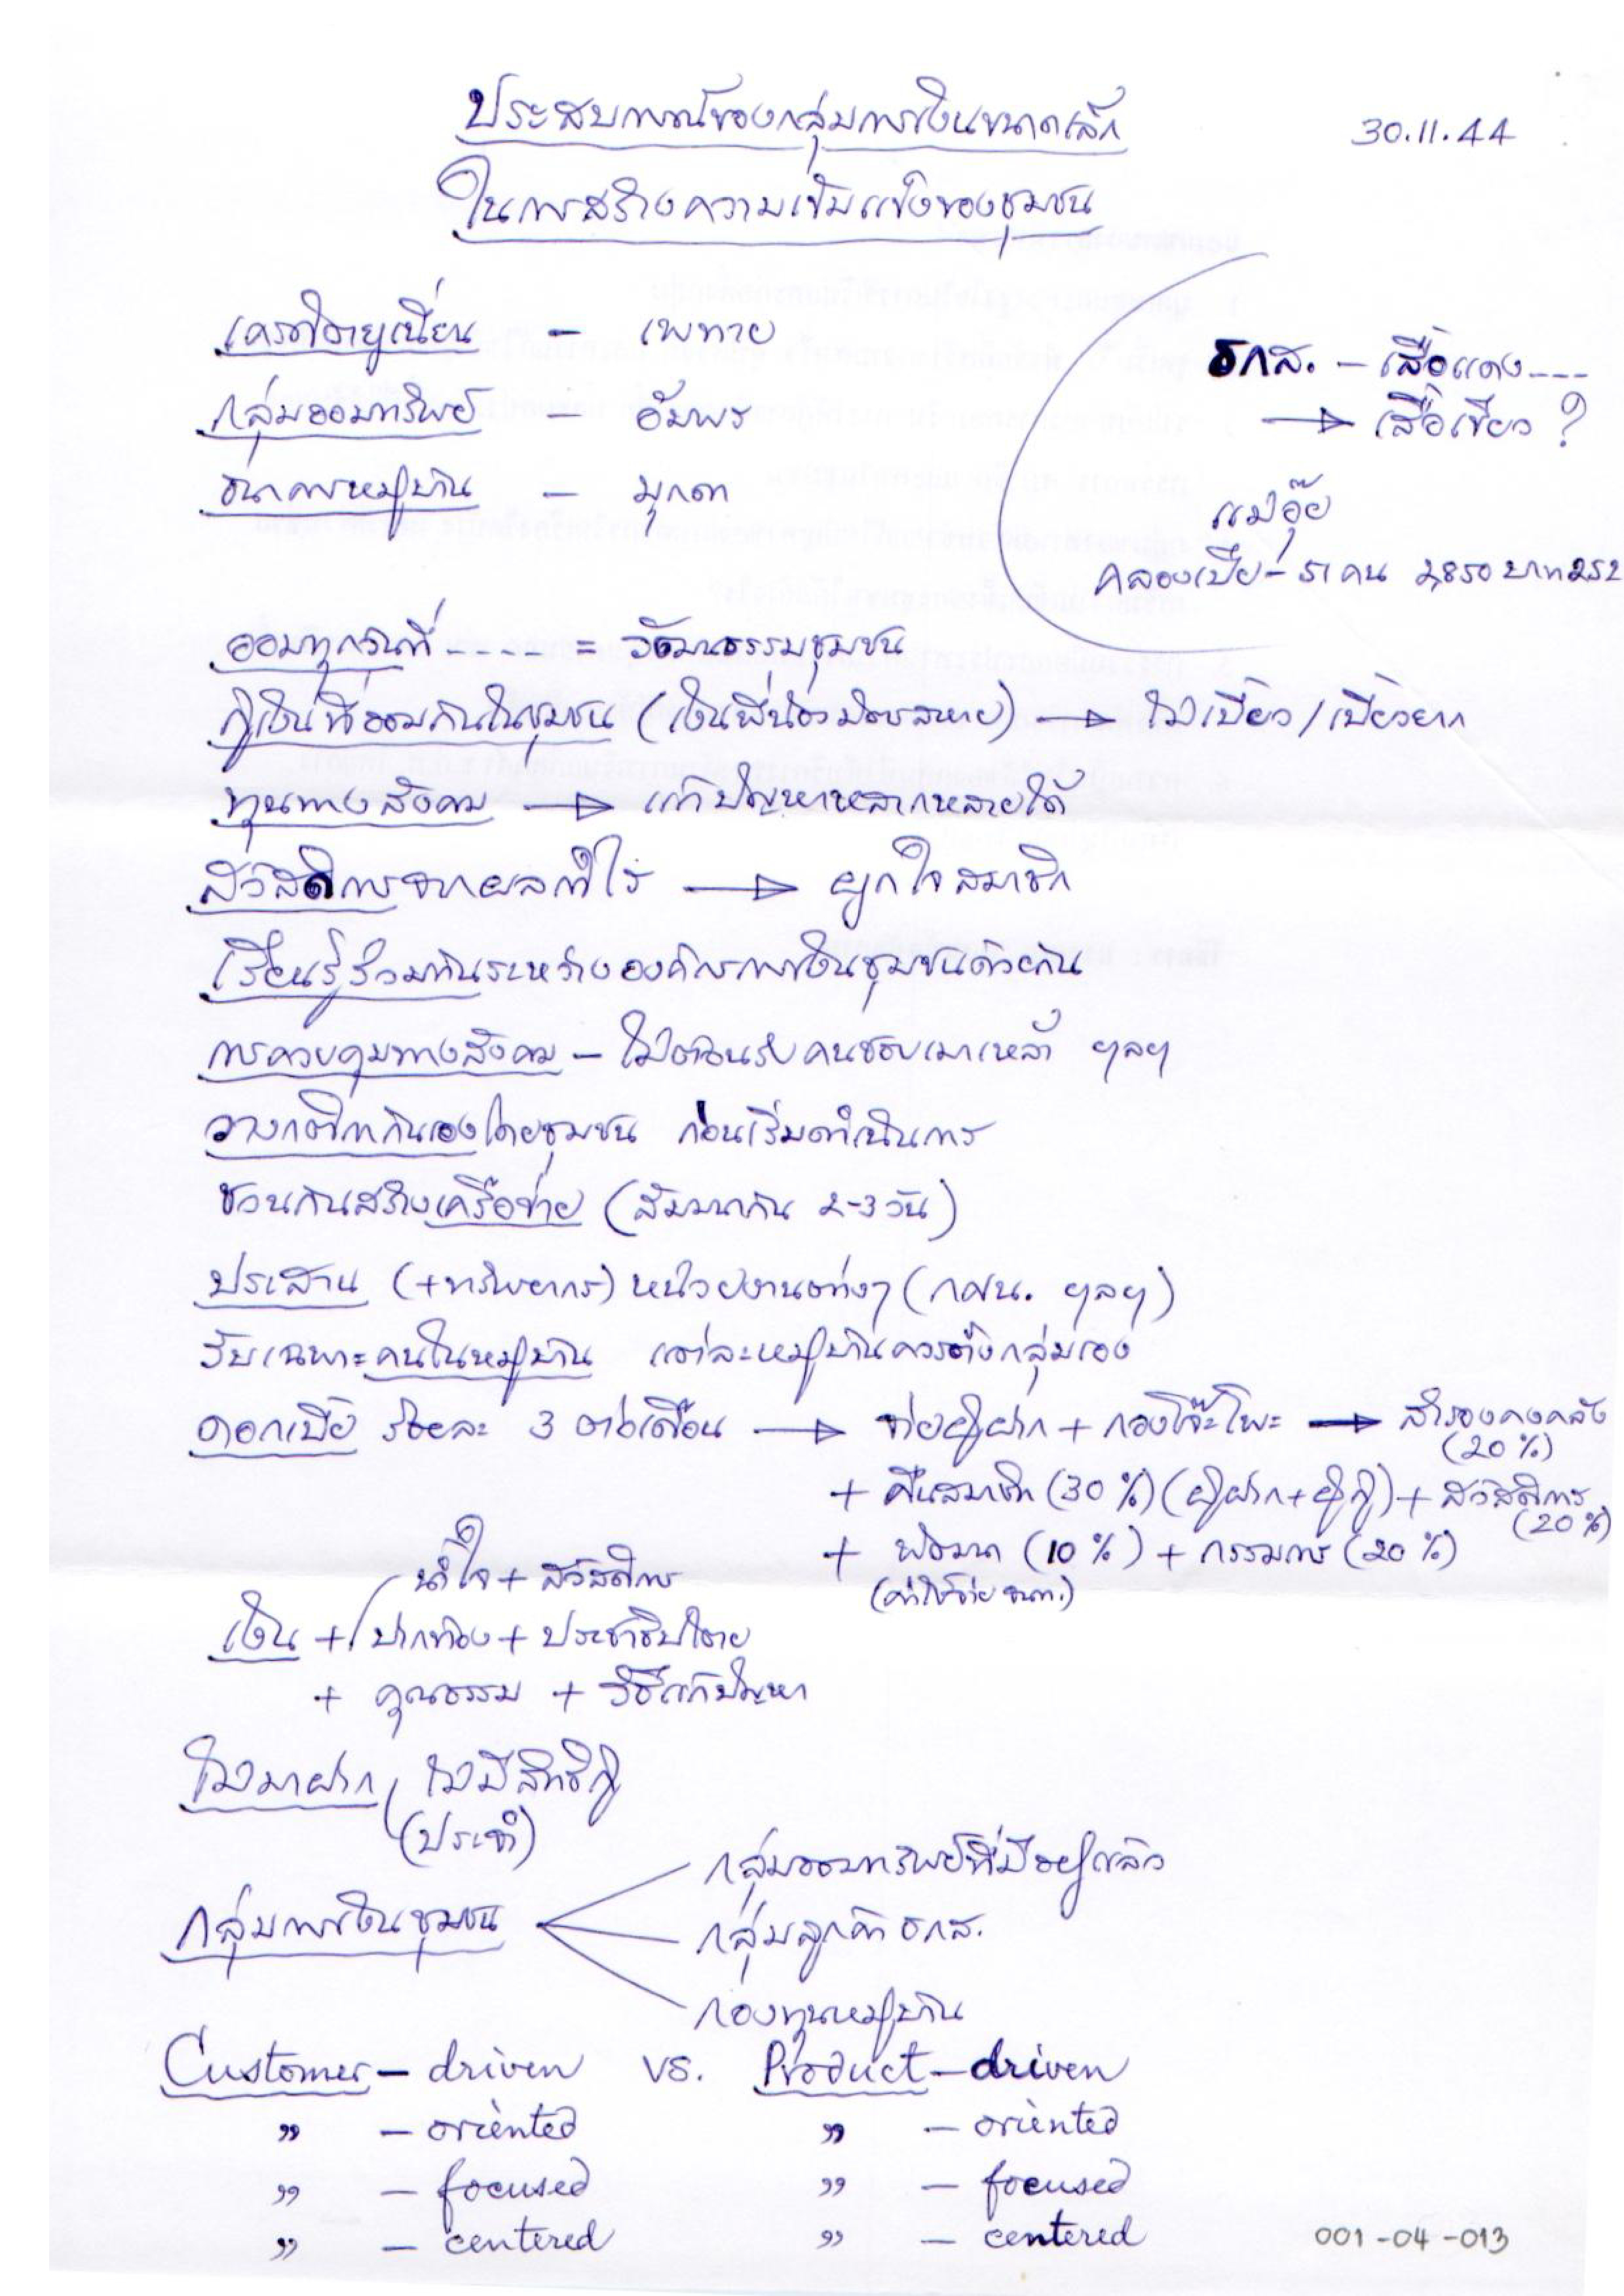 ประสบการณ์ของกลุ่มการเงินขนาดเล็ก
30.11.44
ในการสร้างความเข้มแข็งของชุมชน
เครดิตยูเนี่ยน – เพทาย
กลุ่มออมทรัพย์ – อัมพร
ธนาคารหมู่บ้าน – มุกดา
ธกส. – เสื้อแดง ---
→ เสื้อเขียว ?
แม่อุ๊ย
คลองเปี๊ยะ – 51 คน 2,850 บาท
ออมทุกวันที่ ---- = วัฒนธรรมชุมชน
กู้เงินที่ออมกันในชุมชน (เงินพี่น้องมิตรสหาย) → ไม่เบี้ยว / เบี้ยวยาก
ทุนทางสังคม → แก้ปัญหาหลากหลายได้
สวัสดิการจากผลกำไร → ผูกใจสมาชิก
เรียนรู้ร่วมกันระหว่างองค์กรการเงินชุมชนด้วยกัน
การควบคุมทางสังคม – ไม่ต้อนรับคนชอบเมาเหล้า ฯลฯ
วางกติกากันเองโดยชุมชน ก่อนเริ่มดำเนินการ
ชวนกันสร้างเครือข่าย (สัมมนากัน 2-3 วัน)
ประสาน (+ทรัพยากร) หน่วยงานต่างๆ (กศน. ฯลฯ)
รับเฉพาะคนในหมู่บ้าน แต่ละหมู่บ้านควรตั้งกลุ่มเอง
ดอกเบี้ย ร้อยละ 3 ต่อเดือน → จ่ายผู้ฝาก + กองโจ๊ะโพะ → สำรองคงคลัง
(20%)
+ คืนสมาชิก (30%) (ผู้ฝาก+ผู้กู้) + สวัสดิการ
(20%)
+ พัฒนา (10%) + กรรมการ (20%)
(ค่าใช้จ่าย ธนค.)
น้ำใจ + สวัสดิการ
เงิน + ปากท้อง + ประชาธิปไตย
+ คุณธรรม + วิธีแก้ปัญหา
ไม่มาฝาก ไม่มีสิทธิกู้
(ประจำ)
กลุ่มออมทรัพย์ที่มีอยู่แล้ว
กลุ่มการเงินชุมชน
กลุ่มลูกค้า ธกส.
กองทุนหมู่บ้าน
Customer – driven vs. Product – driven
" – oriented " – oriented
" – focused " – focused
" – centered " – centered
001-04-013